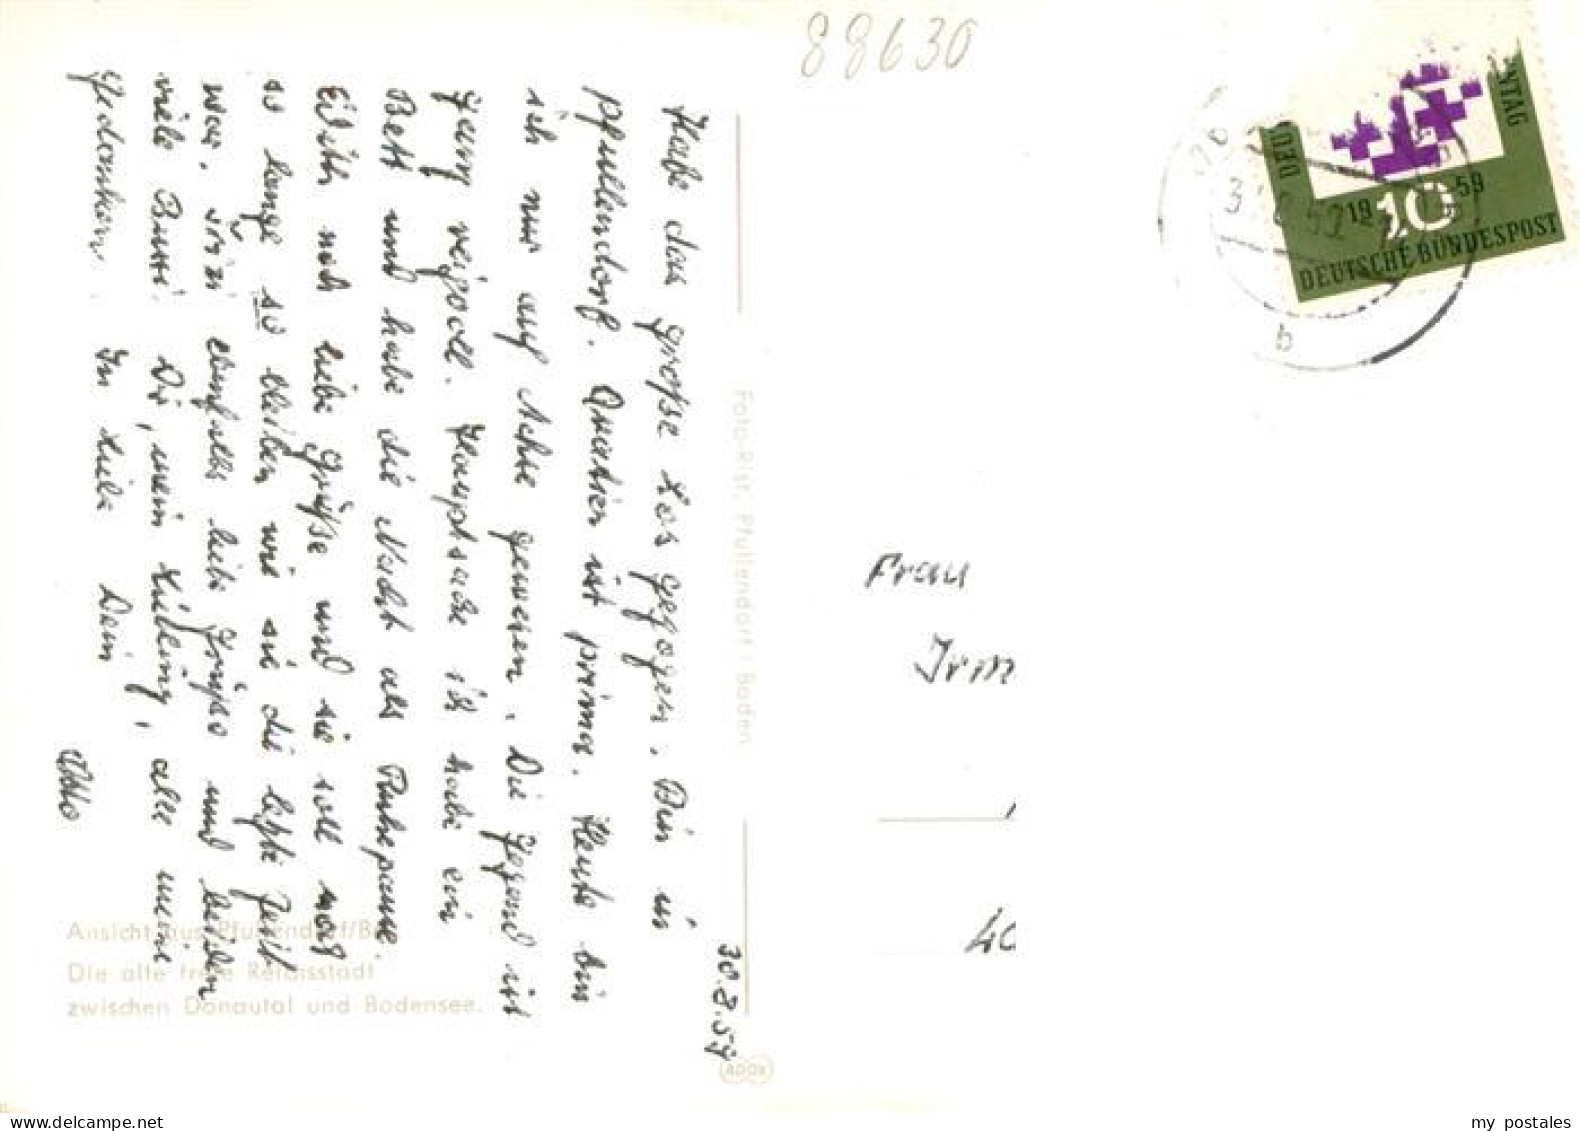 88630
30.8.59
Habe das große Los gezogen. Bin in
Pfullendorf. Quatier ist prima. Heute bin
ich nur auf Achse gewesen. Die Gegend ist
ganz reizvoll. Hauptsache ist habe ein
Bett und habe die Nacht als Ruhepause.
Edith noch liebe Grüße und sie soll noch
so lange so bleiben wie sie die letzte Zeit
war. ebenfalls liebe Grüße und beiden
viele Bussi. Dir, mein Liebling, alle meine
Gedanken. In Liebe Dein
Otto
Foto-Rist, Pfullendorf / Baden
Ansicht aus Pfullendorf/Ba
Die alte freie Reichsstadt
zwischen Donautal und Bodensee.
ADOX
DEUT NTAG
1959
10
DEUTSCHE BUNDESPOST
b
Frau
Irm
40
my postales